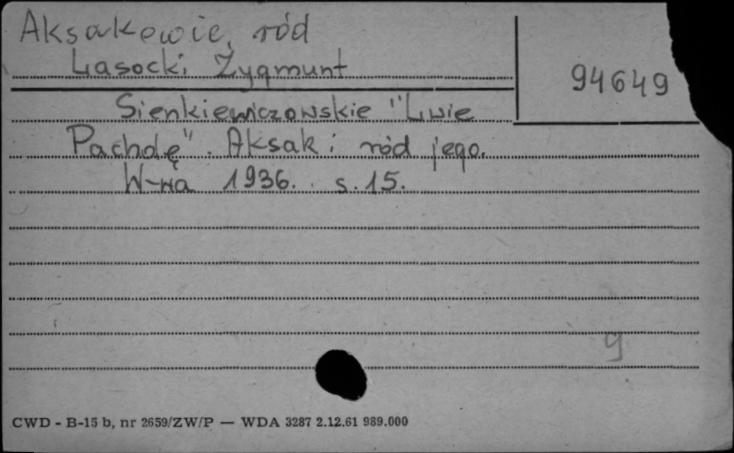 Aksakowie, ród
Lasocki Zygmunt
94649
Sienkiewiczowskie "Lwie
Pacholę". Aksak i ród jego.
W-wa 1936. s. 15.
9
CWD - B-15 b, nr 2659/ZW/P — WDA 3287 2.12.61 989.000